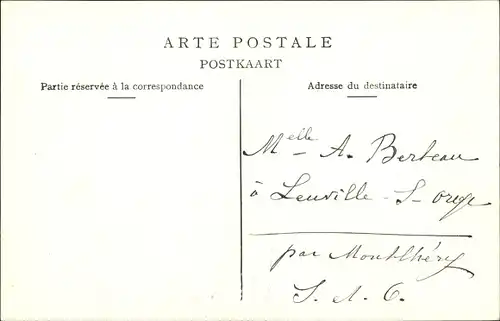 ARTE POSTALE
POSTKAART
Partie réservée à la correspondance
Adresse du destinataire
Melle A. Berteau
à Leuville - S - orge
par Montlhéry
S. et O.